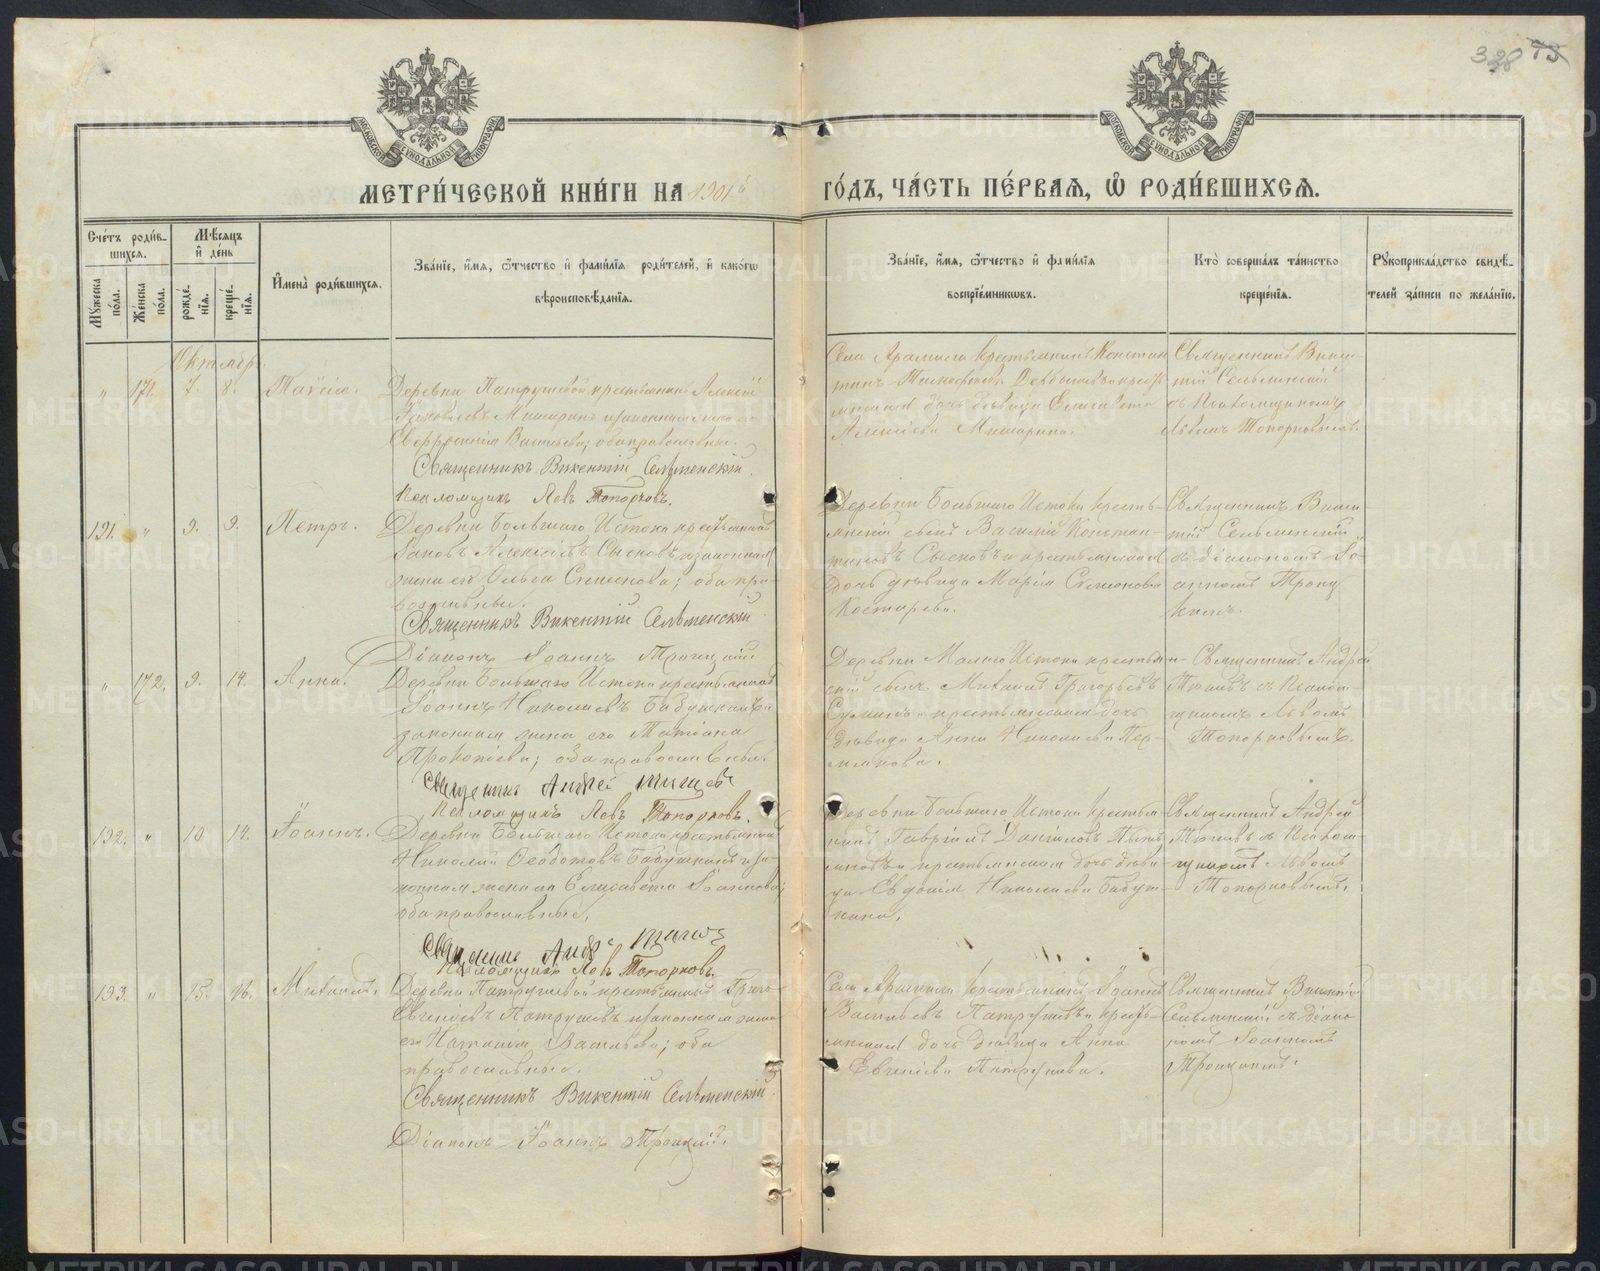 338 73
МОСКОВСКОЙ СУНОДАЛЬНОЙ ТИПОГРАФІИ
МОСКОВСКОЙ СУНОДАЛЬНОЙ ТИПОГРАФІИ
МЕТРИ́ЧЕСКОЙ КНИ́ГИ НА 1901й ГО́ДЪ, ЧА́СТЬ ПЕ́РВАЯ, Ѡ РОДИ́ВШИХСЯ.
Сче́тъ роди́в-
шихся.
Мужеска по́ла.
Же́нска по́ла.
Мѣ́сяцъ и҆ де́нь
рожде́нїя.
креще́нїя.
И҆мена̀ роди́вшихся.
Зва́нїе, и҆́мя, ѻ҆́тчество и҆ фами́лїя роди́телей, и҆ како́гѡ
вѣроисповѣ́данїя.
Зва́нїе, и҆́мя, ѻ҆́тчество и҆ фами́лїя
воспрїе́мникѡвъ.
Кто̀ соверша́лъ та́инство
креще́нїя.
Рꙋкоприкла́дство свидѣ́-
телей за́писи по жела́нїю.
Октябрь
" 171. 7. 8. Таисія.
Деревни Патрушевой крестьянинъ Алексій
Яковлевъ Мишаринъ и законная жена его
Васильева; оба православные.
Священникъ Викентій Сельменскій.
Псаломщикъ Левъ Топорковъ.
Села Арамиля крестьянинъ Констан-
тинъ и кресть-
янская дочь дѣвица Елисавета
Алексіева Мишарина.
Священникъ Викен-
тій Сельменскій
съ Псаломщикомъ
Львомъ Топорковымъ.
191. " 9. 9. Петръ.
Деревни Большаго Истока крестьянинъ
Іаковъ Алексіевъ Сысковъ и законная
жена его Ольга Симеонова; оба пра-
вославные.
Священникъ Викентій Сельменскій
Діаконъ Іоаннъ Троицкій
Деревни Большаго Истока кресть-
янскій сынъ Василій Констан-
тиновъ Сысковъ и крестьянская
дочь дѣвица Марія Симеонова
Костарева.
Священникъ Викен-
тій Сельменскій
съ діакономъ Іо-
анномъ Троиц-
кимъ.
" 172. 9. 14. Анна.
Деревни Большаго Истока крестьянинъ
Іоаннъ Николаевъ Бабушкинъ и
законная жена его Татіана
Прокопіева; оба православные.
Священникъ Андрей
Псаломщикъ Левъ Топорковъ.
Деревни Малаго Истока крестьян-
скій сынъ Михаилъ Григорьевъ
и крестьянская дочь
дѣвица Анна Николаева Пер-
минова.
Священникъ Андрей
съ Псалом-
щикомъ Львомъ
Топорковымъ.
192. " 10 14. Іоаннъ.
Деревни Большаго Истока крестьянинъ
Николай Ѳеодотовъ Бабушкинъ и за-
конная жена его Елисавета Іоаннова;
оба православные.
Священникъ Андрей
Псаломщикъ Левъ Топорковъ.
Деревни Большаго Истока крестья-
нинъ Гавріилъ Даніиловъ
и крестьянская дочь дѣви-
ца Евдокія Николаева Бабуш-
кина.
Священникъ Андрей
съ Псалом-
щикомъ Львомъ
Топорковымъ.
193. " 15. 16. Михаилъ.
Деревни Патрушевой крестьянинъ
Евгеніевъ Патрушевъ и законная жена
его Наталія Васильева; оба
православные.
Священникъ Викентій Сельменскій.
Діаконъ Іоаннъ Троицкій.
Села Арамили крестьянинъ Іоаннъ
Васильевъ Патрушевъ и кресть-
янская дочь дѣвица Анна
Евгеніева Патрушева.
Священникъ Викентій
Сельменскій съ діако-
номъ Іоанномъ
Троицкимъ.
METRIKI.GASO-URAL.RU